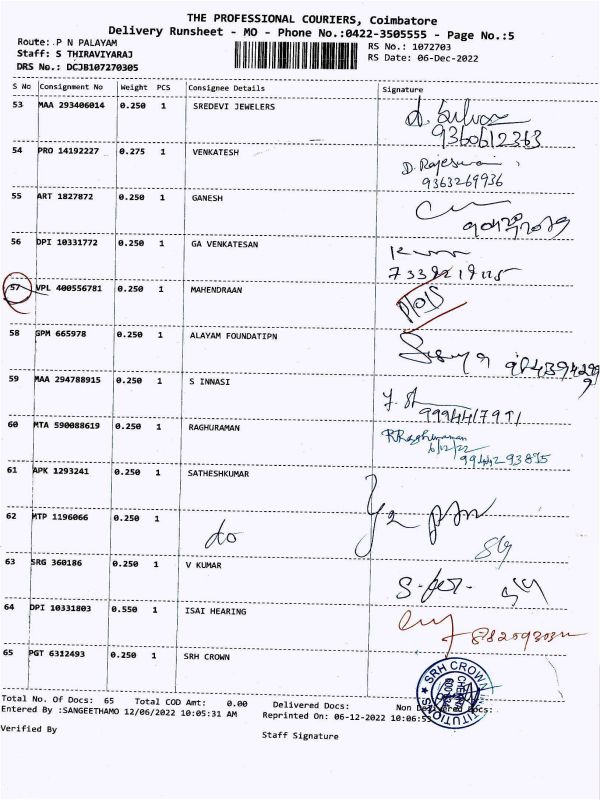 THE PROFESSIONAL COURIERS, Coimbatore
Delivery Runsheet - MO - Phone No.:0422-3505555 - Page No.:5
Route: P N PALAYAM
RS No.: 1072703
Staff: S THIRAVIYARAJ
RS Date: 06-Dec-2022
DRS No.: DCJB107270305
S No Consignment No Weight PCS Consignee Details Signature
53 MAA 293406014 0.250 1 SREDEVI JEWELERS
9360612363
54 PRO 14192227 0.275 1 VENKATESH D. Rajeswari
9363269936
55 ART 1827872 0.250 1 GANESH
56 DPI 10331772 0.250 1 GA VENKATESAN
57 VPL 400556781 0.250 1 MAHENDRAAN
58 GPM 665978 0.250 1 ALAYAM FOUNDATIPN
59 MAA 294788915 0.250 1 S INNASI
60 MTA 590088619 0.250 1 RAGHURAMAN RRaghuraman
6/12/22
61 APK 1293241 0.250 1 SATHESHKUMAR
62 MTP 1196066 0.250 1 do
63 SRG 360186 0.250 1 V KUMAR
64 DPI 10331803 0.550 1 ISAI HEARING
65 PGT 6312493 0.250 1 SRH CROWN
SRH CROWN
Total No. Of Docs: 65 Total COD Amt: 0.00 Delivered Docs: Non Delivered Docs:
Entered By :SANGEETHAMO 12/06/2022 10:05:31 AM Reprinted On: 06-12-2022 10:06:53
Verified By Staff Signature